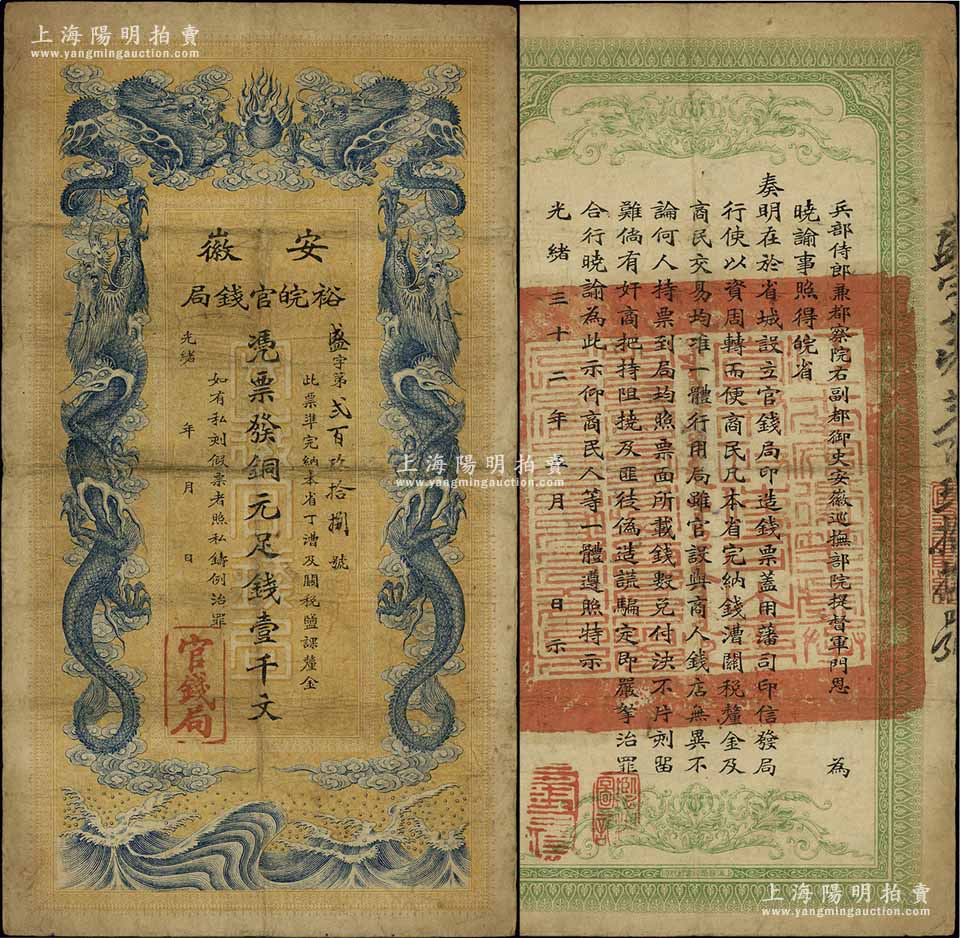 上海陽明拍賣
www.yangmingauction.com
安徽
裕皖官錢局
盛字第弍百玖拾捌號
此票準完納本省丁漕及關稅鹽課釐金
憑票發銅元足錢壹千文
如有私刻假票者照私鑄例治罪
光緒 年 月 日
官錢局
兵部侍郎兼都察院右副都御史安徽巡撫部院提督軍門恩 為
曉諭事照得皖省
奏明在於省城設立官錢局印造錢票蓋用藩司印信發局
行使以資周轉而便商民凡本省完納錢漕關稅釐金及
商民交易均准一體行用局雖官設與商人錢店無異不
論何人持票到局均照票面所載錢數兌付決不片刻留
難倘有奸商把持阻撓及匪徒偽造謊騙定即嚴拏治罪
合行曉諭為此示仰商民人等一體遵照特示
光緒三十二年 月 日示
上海陽明拍賣
www.yangmingauction.com
上海陽明拍賣
www.yangmingauction.com